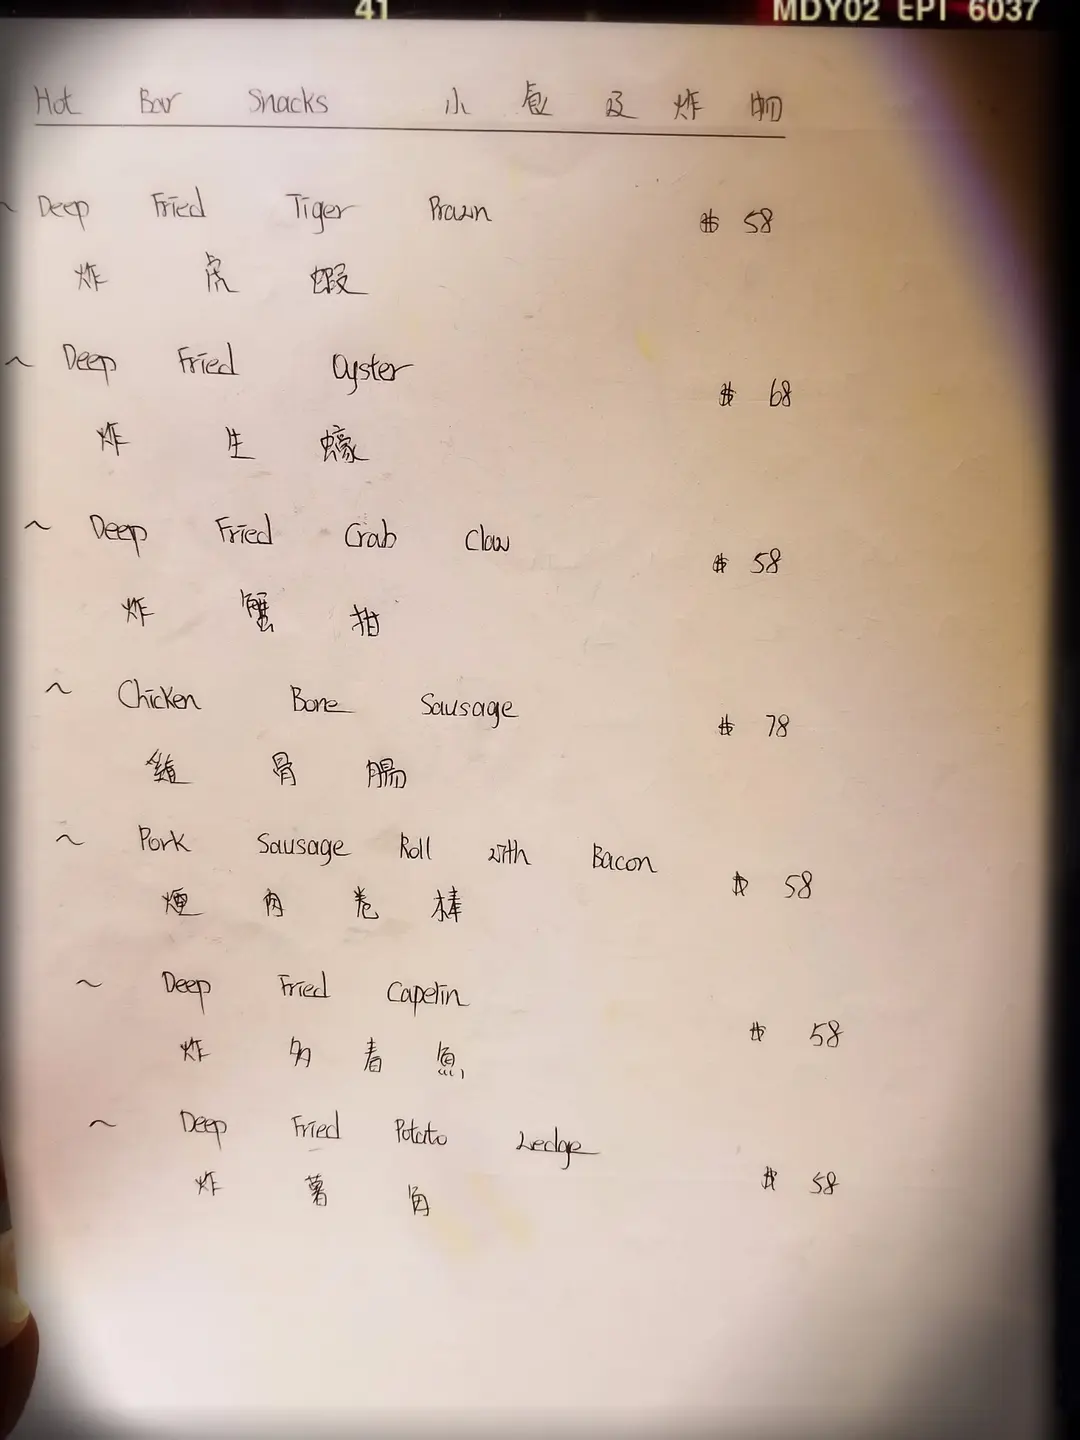 41 MDY02 EPI 6037
Hot Bar Snacks 小食及炸物
~ Deep Fried Tiger Prawn $ 58
炸虎蝦
~ Deep Fried Oyster $ 68
炸生蠔
~ Deep Fried Crab Claw $ 58
炸蟹拑
~ Chicken Bone Sausage $ 78
雞骨腸
~ Pork Sausage Roll with Bacon $ 58
煙肉卷棒
~ Deep Fried Capelin $ 58
炸多春魚
~ Deep Fried Potato Wedge $ 58
炸薯角